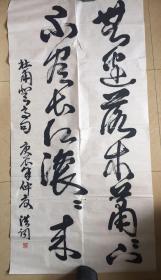 無邊落木蕭〻下
不盡長江滾〻来
杜甫登高句 庚辰年仲夏